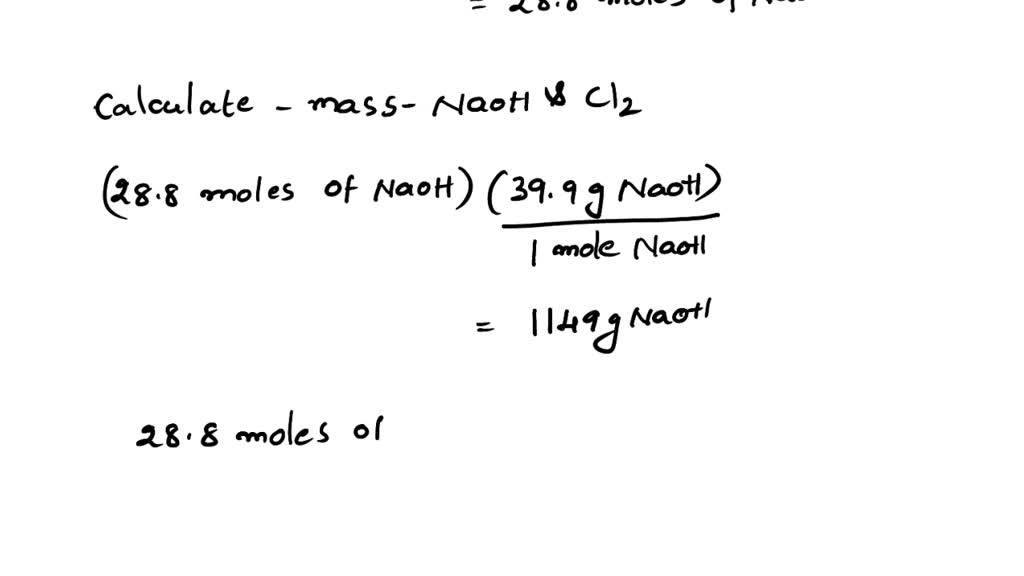 = 28.8 moles of
Calculate - mass - NaOH & Cl2
(28.8 moles of NaOH) (39.9g NaOH)
1 mole NaOH
= 1149g NaOH
28.8 moles of